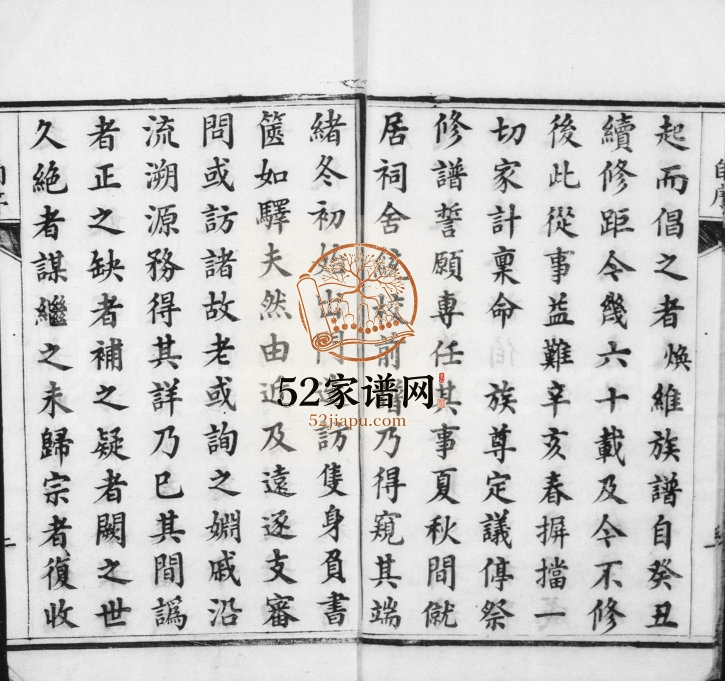 起而倡之者煥維族譜自癸丑
續修距今幾六十載及今不修
後此從事益難辛亥春摒擋一
切家計稟命 族尊定議停祭
修譜誓願專任其事夏秋間僦
居祠舍 校前 乃得窺其端
緒冬初始出 訪隻身負書
篋如驛夫然由近及遠逐支審
問或訪諸故老或詢之婣戚沿
流溯源務得其詳乃已其間譌
者正之缺者補之疑者闕之世
久絶者謀繼之未歸宗者復收
52家谱网
52jiapu.com